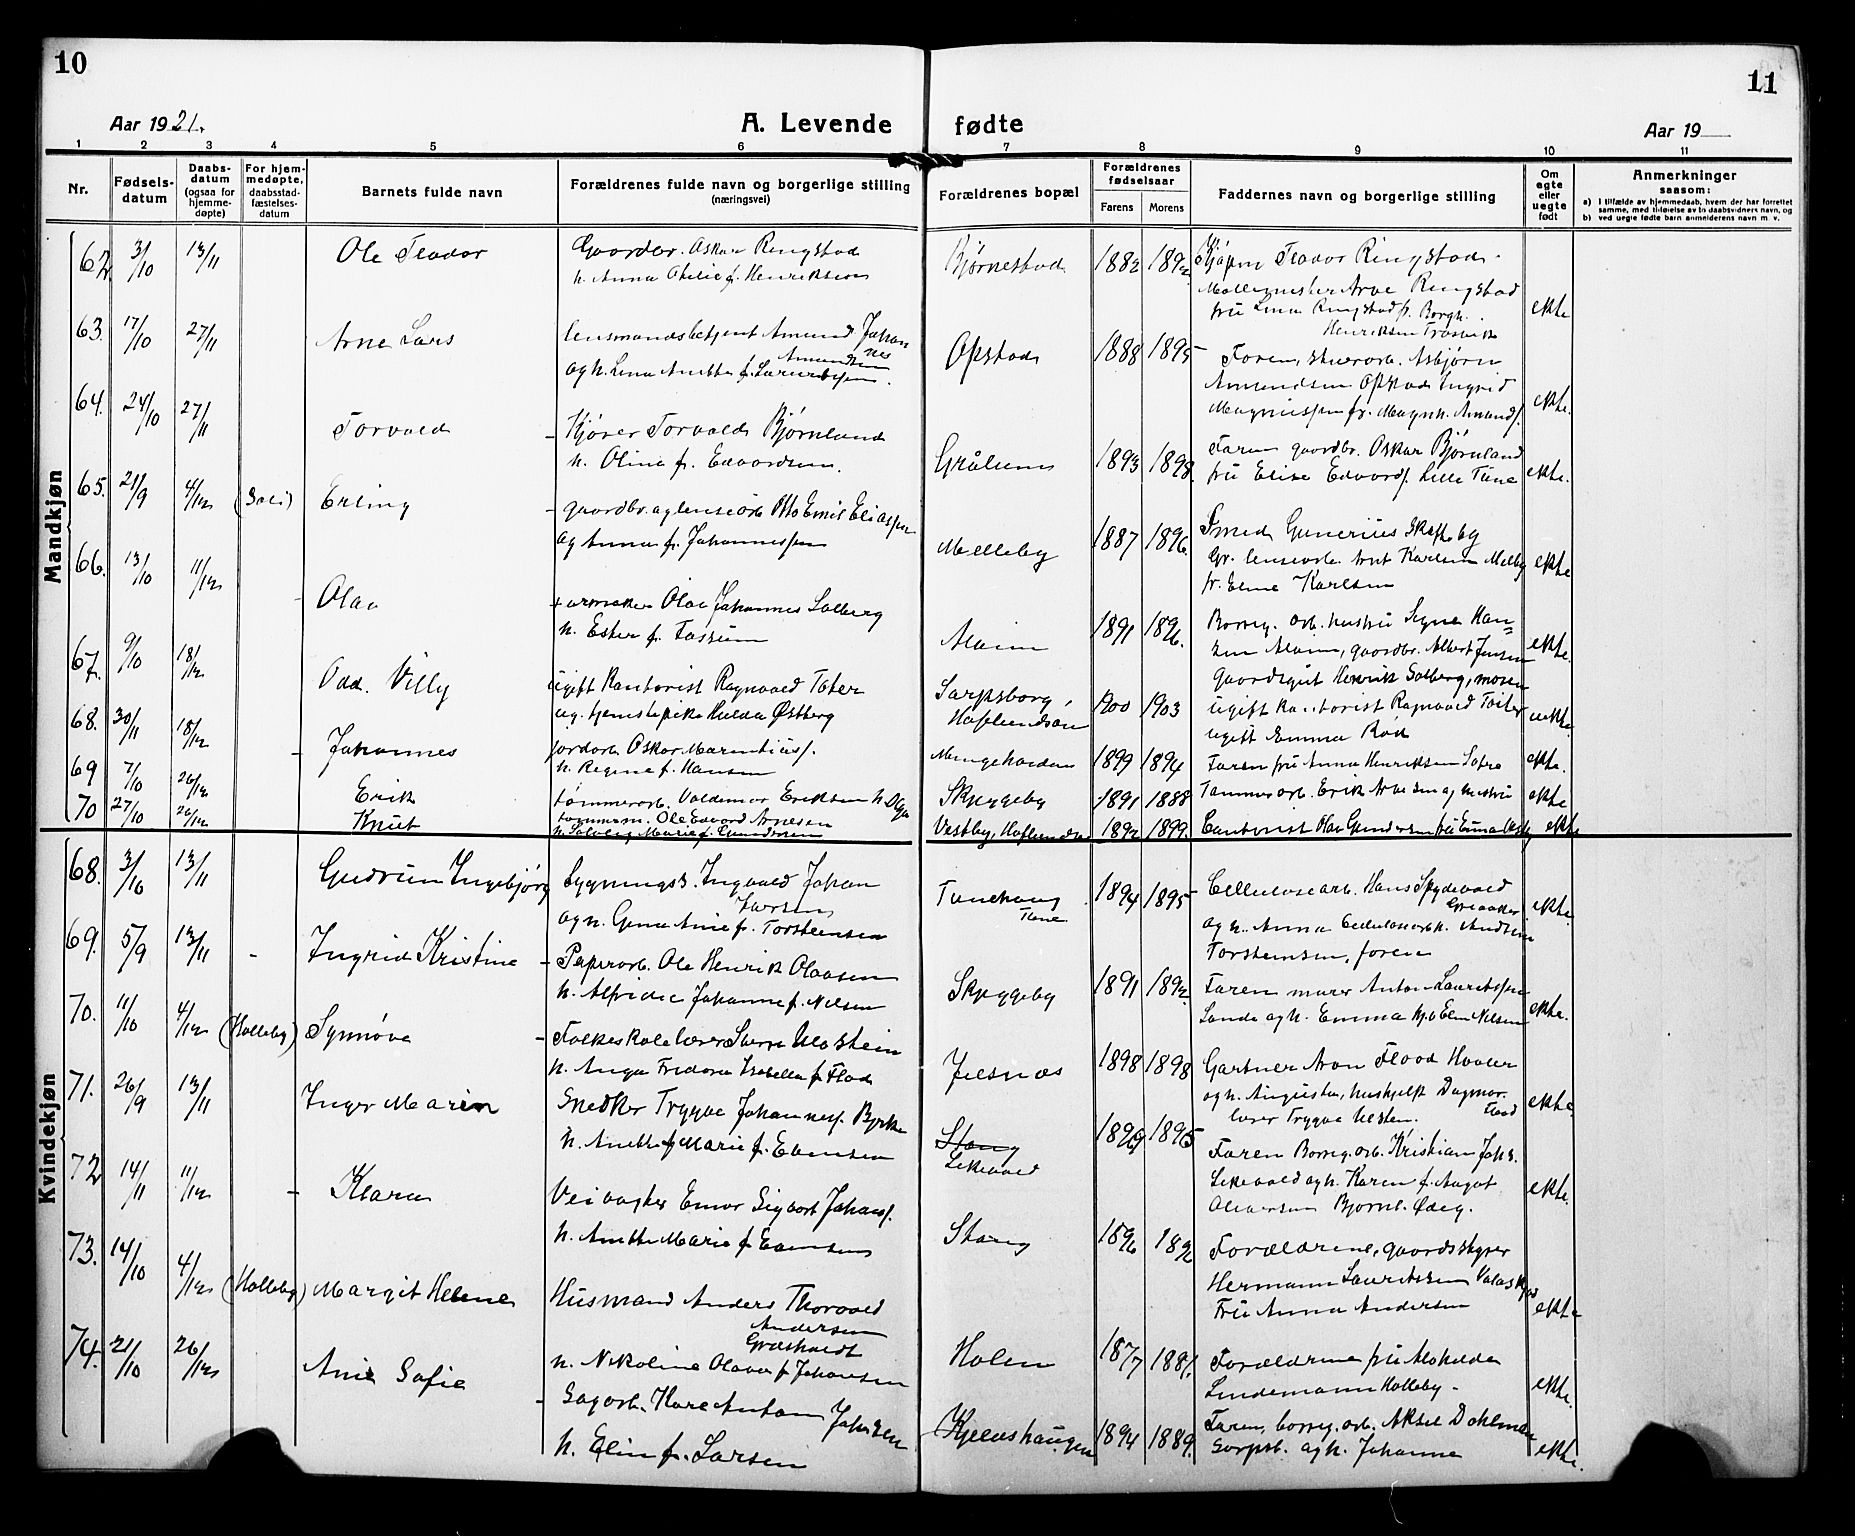 10
11
Aar 1921.
A. Levende fødte
Aar 19
1 2 3 4 5 6 7 8 9 10 11
Nr.
Fødselsdatum
Daabsdatum (ogsaa for hjemmedøpte)
For hjemmedøpte, daabsstadfæstelsesdatum
Barnets fulde navn
Forældrenes fulde navn og borgerlige stilling (næringsvei)
Forældrenes bopæl
Forældrenes fødselsaar
Farens Morens
Faddernes navn og borgerlige stilling
Om egte eller uegte født
Anmerkninger
saasom:
a) I tilfælde av hjemmedaab, hvem der har forrettet samme, med tilføielse av to daabsvidners navn, og
b) ved uegte fødte barn anmelderens navn m. v.
Mandkjøn
62 3/10 13/11 Ole Teodor Gaardbr. Oskar Ringstad
h. Anna Otilie f. Henriksen
Bjørnestad 1882 1892 Teodor Ringstad
Møllemester Arve Ringstad
fru Lina Ringstad fr. Borgh.
Henriksen Trosvik
ekte
63. 17/10 27/11 Arne Lars lensmandsbetjent Amund Johannes
Amundsen
og h. Lina Anette f.
Opstad 1888 1895 Faren, Asbjørn
Amundsen Opstad Ingrid
Magnussen fr. Magnh. Amunds.
ekte.
64. 24/10 27/11 Torvald Kjører Torvald Bjørnland
h. Oline f. Edvardsen.
Grålum 1893 1898. Faren gaardbr. Oskar Bjørnland
fru Elise Edvards. Lille Tune
ekte.
65. 21/9 4/12 (Soli) Erling gaardbr. og lensearb Otto Emil Eliassen
og Anna f. Johannessen
Melleby 1887 1896. Smed Gunerius Skofteby
lensearb. Karlsen Melby
fr. Elne Karlsen
ekte
66. 13/10 11/12 Olav urmaker Olav Johannes Solberg
h. Ester f. Fossum
Alvim 1891 1896. Borreg. arb. hustru Signe Hansen
Alvim, gaardbr. Albert Jensen
gaardsgut Henrik Solberg,
ekte.
67. 9/10 18/12 Odd Villy ugift kontorist Ragnvald Toter
ug. tjenstepike Hulda Østberg
Sarpsborg,
Hafslundsøen
1900 1903 ugift kontorist Ragnvald
ugift Emma Röd
uekte
68. 30/11 18/12 Johannes jordarb Oskar Marentius.
h. Regine f. Hansen
1899 1894 Faren fru Anna Henriksen
ekte.
69 7/10 26/12 Erik tømmerarb. Valdemar Eriksen
Skyggeby 1891 1888 Tømmerarb. Erik Arvesen og hustru ekte
70 27/10 26/12 Knut tømmerm. Ole Edvard Arnesen
h. Solveig Marie f. Gundersen
Vestby, Hafslundsø 1892 1899. Kontorist Olav Gundersen fru ekte
Kvindekjøn
68. 3/10 13/11 Gudrun Ingebjørg Bygningss. Ingvald Johan
Larsen
og h. Gina Anie f. Torstensen
Tunehaug
Tune
1894 1895 Cellulosearb. Hans Spydevold
Greaaker
og h. Anna
Torstensen, foren
ekte.
69. 5/9 13/11 Ingrid Kristine Papirarb. Ole Henrik Olavsen
h. Alfride Johanne f. Nilsen
Skyggeby 1891 1892. Faren murer Anton Lauritssen
Sande og h. Emma Nilsen
ekte.
70. 11/10 4/12 (Holleby) Synnøve Folkeskolelærer Sverre Ulvstein
h. Inga Fredora Isabella f. Flod
Jelsnæs 1898 1898 Gartner Aron Flood Hvaler
og h. Augusta, hushjelp Dagmar
Flood
lærer Trygve
ekte.
71. 26/9 13/11 Inger Marin Snedker Trygve Johannes. Byrke
h. Anette Marie f. Ebensen
Stang
Lekevold
1899 1895 Faren Borreg. arb. Kristian Johs.
Lekevold og h. Karen f. Aagot
Olaversen Bjørnl.
ekte.
72 14/11 11/12 Klara Veivogter Einar Sigvart Johans.
h. Anette Marie f. Evensen
Stang 1896 1892 Forældrene, gaardsstyrer
Hermann Lauritssen
Fru Anna Andersen
ekte
73. 14/10 4/12 (Holleby) Margit Helene Husmand Anders Thorvald
Andersen
h. Nikoline Olava f. Johansen
Holen 1877 1881. Forældrene fru
Lindemann Holleby
ekte.
74. 21/10 26/12 Anie Sofie Sagarb. Kare Anton Johansen
h. Elin f. Larsen
Kjelshaugen 1894 1889. Faren, borreg. arb. Aksel Dahlman
Sarpsb. og h. Johanne
ekte.